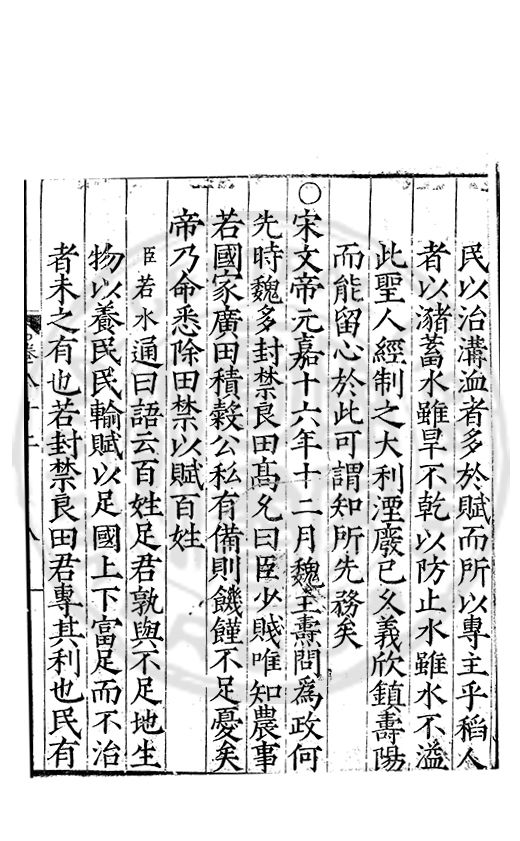 民以治溝洫者多於賦而所以專主乎稻人
者以瀦蓄水雖旱不乾以防止水雖水不溢
此聖人經制之大利湮廢已久義欣鎮壽陽
而能留心於此可謂知所先務矣
○宋文帝元嘉十六年十二月魏主壽問為政何
先時魏多封禁良田髙允曰臣少賤唯知農事
若國家廣田積穀公私有備則饑饉不足憂矣
帝乃命悉除田禁以賦百姓
臣若水通曰語云百姓足君孰與不足地生
物以養民民輸賦以足國上下富足而不治
者未之有也若封禁良田君專其利也民有